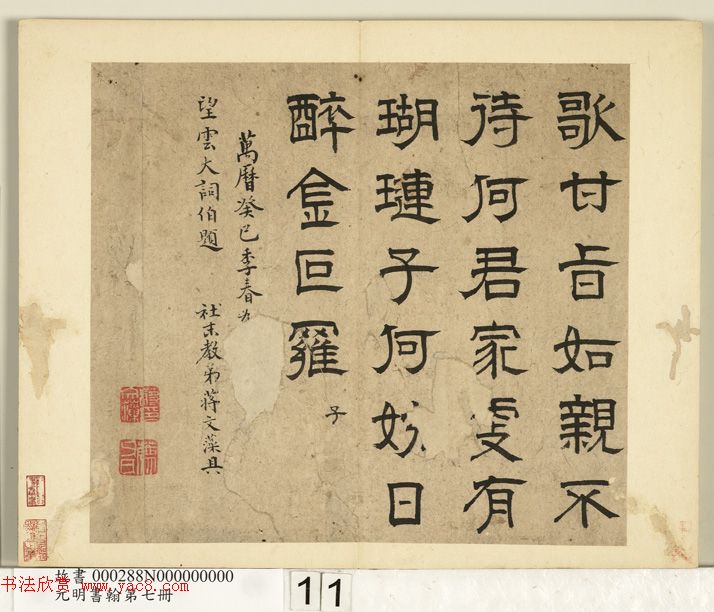 歌甘旨如親不
待何君家更有
瑚璉子何妨日
醉金叵羅
子
萬曆癸巳季春為
望雲大詞伯題
社末教弟蔣文藻具
故書 000288N000000000
元明書翰第七冊
书法欣赏 www.yac8.com
11